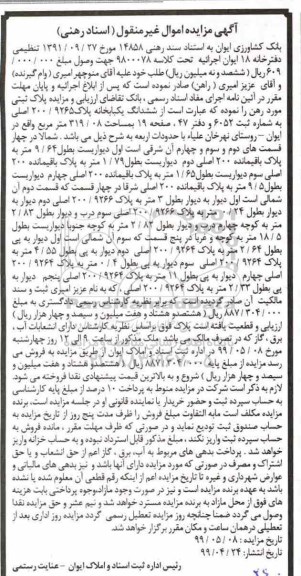 آگهی مزایده اموال غیرمنقول (اسناد رهنی)
بانک کشاورزی ایوان به استناد سند رهنی ۱۴۸۵۸ مورخ ۱۳۹۱/۰۹/۲۷ تنظیمی
دفترخانه ۱۸ ایوان اجرائیه تحت کلاسه ۹۸۰۰۰۷۸ جهت وصول مبلغ ۰۰۰/۰۰۰/
۶۰۹ ریال (ششصد و نه میلیون ریال) طلب خود علیه آقای منوچهر امیری (وام گیرنده)
و آقای عزیز امیری (راهن) صادر نموده است که پس از ابلاغ اجرائیه و پایان مهلت
مقرر در آئین نامه اجرای مفاد اسناد رسمی، بانک تقاضای ارزیابی و مزایده پلاک ثبتی
مورد رهن را نموده که عبارت است از ششدانگ یکبابخانه پلاک ۹۲۶۵/۲۰۰ اصلی
به شماره ثبت ۶۰۵۲ و دفتر ۴۷، صفحه ۱۹ بمساحت ۳۱۹/۰۸ متر مربع واقع در
ایوان – روستای نهرخان علیاء با حدودات اربعه به شرح ذیل می باشد. شمالا در چهار
قسمت های دوم و سوم و چهارم آن شرقی است اول دیواریست بطول ۹/۶۴ متر به
پلاک باقیمانده ۲۰۰ اصلی دوم دیواریست بطول ۱/۷۹ متر به پلاک باقیمانده ۲۰۰
اصلی سوم دیواریست بطول ۱/۶۵ متر به پلاک باقیمانده ۲۰۰ اصلی چهارم دیواریست
بطول ۹/۵ متر به پلاک باقیمانده ۲۰۰ اصلی شرقا در چهار قسمت که قسمت دوم آن
شمالی است اول دیوار به دیوار بطول ۳ متر به پلاک ۹۲۶۶/۲۰۰ اصلی دوم دیوار به
متر به کوچه چهارم درب و دیوار بطول ۲/۸۲ متر به کوچه جنوبا دیواریست بطول
۱۸/۵ متر به کوچه و غربا در پنج قسمت که سوم آن شمالی است اول دیوار به پی
مالکیت آن صادر گردیده است که برابر نظریه کارشناس رسمی دادگستری به مبلغ
۸۸۷/۳۰۴/۰۰۰ ریال (هشتصد و هشتاد و هفت میلیون و سیصد و چهار هزار ریال)
ارزیابی و قطعیت یافته است پلاک فوق براساس نظریه کارشناس دارای انشعابات آب،
برق، گاز که در تصرف مالک می باشد. ملک مذکور از ساعت ۹ الی ۱۲ روز چهارشنبه
مورخ ۹۹/۰۵/۰۸ در اداره ثبت اسناد و املاک ایوان از طریق مزایده به فروش می
رسد مزایده از مبلغ پایه ۸۸۷/۳۰۴/۰۰۰ ریال (هشتصد و هشتاد و هفت میلیون و
سیصد و چهار هزار ریال) شروع و به بالاترین قیمت پیشنهادی نقدا فروخته می شود.
لازم به ذکر است شرکت در مزایده منوط به پرداخت ۱۰ درصد از مبلغ پایه کارشناسی
به حساب سپرده ثبت و حضور خریدار یا نماینده قانونی او در جلسه مزایده است، برنده
مزایده مکلف است مابه التفاوت مبلغ فروش را ظرف مدت پنج روز از تاریخ مزایده به
حساب صندوق ثبت تودیع نماید و در صورتی که ظرف مهلت مقرر، مانده فروش به
حساب سپرده ثبت واریز نکند، مبلغ مذکور قابل استرداد نبوده و به حساب خزانه واریز
خواهد شد. پرداخت بدهی های مربوط به آب، برق، گاز اعم از حق انشعاب و یا حق
اشتراک و مصرف در صورتی که مورد مزایده دارای آنها باشد و نیز بدهی های مالیاتی و
عوارض شهرداری و غیره تا تاریخ مزایده اعم از اینکه رقم قطعی آن معلوم شده یا نشده
باشد به عهده برنده مزایده است و نیز در صورت وجود مازاد، وجوه پرداختی بابت هزینه
های فوق از محل مازاد به برنده مزایده مسترد خواهد شد و نیم عشر و حق مزایده نقدا
وصول می گردد ضمنا چنانچه روز مزایده تعطیل رسمی گردد مزایده روز اداری بعد از
تعطیلی در همان ساعت و مکان مقرر برگزار خواهد شد.
تاریخ مزایده: ۹۹/۰۵/۰۸
تاریخ انتشار: ۹۹/۰۴/۲۴
رئیس اداره ثبت اسناد و املاک ایوان - عنایت رستمی